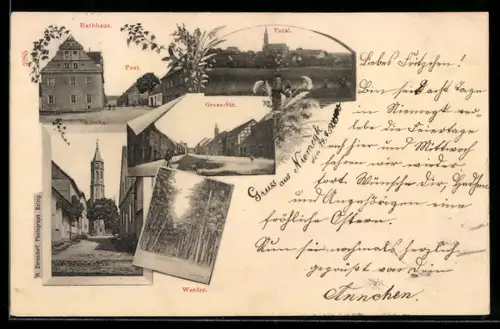 Rathhaus.
Post.
Total.
Gross-Str.
Kirche.
Werder.
Gruss aus Niemegk
H. Zernsdorf, Photograph. Belzig.
Liebes Fritzchen!
Bin seit acht Tage
in Niemegk ver-
lebe die Feiertage
auch hier und Mittwoch
fahren wir wieder
fort. Wünsche Dir,
und Angehörigen eine
fröhliche Ostern.
Nun sei nochmals herzlich
gegrüßt von Dein
Annchen.